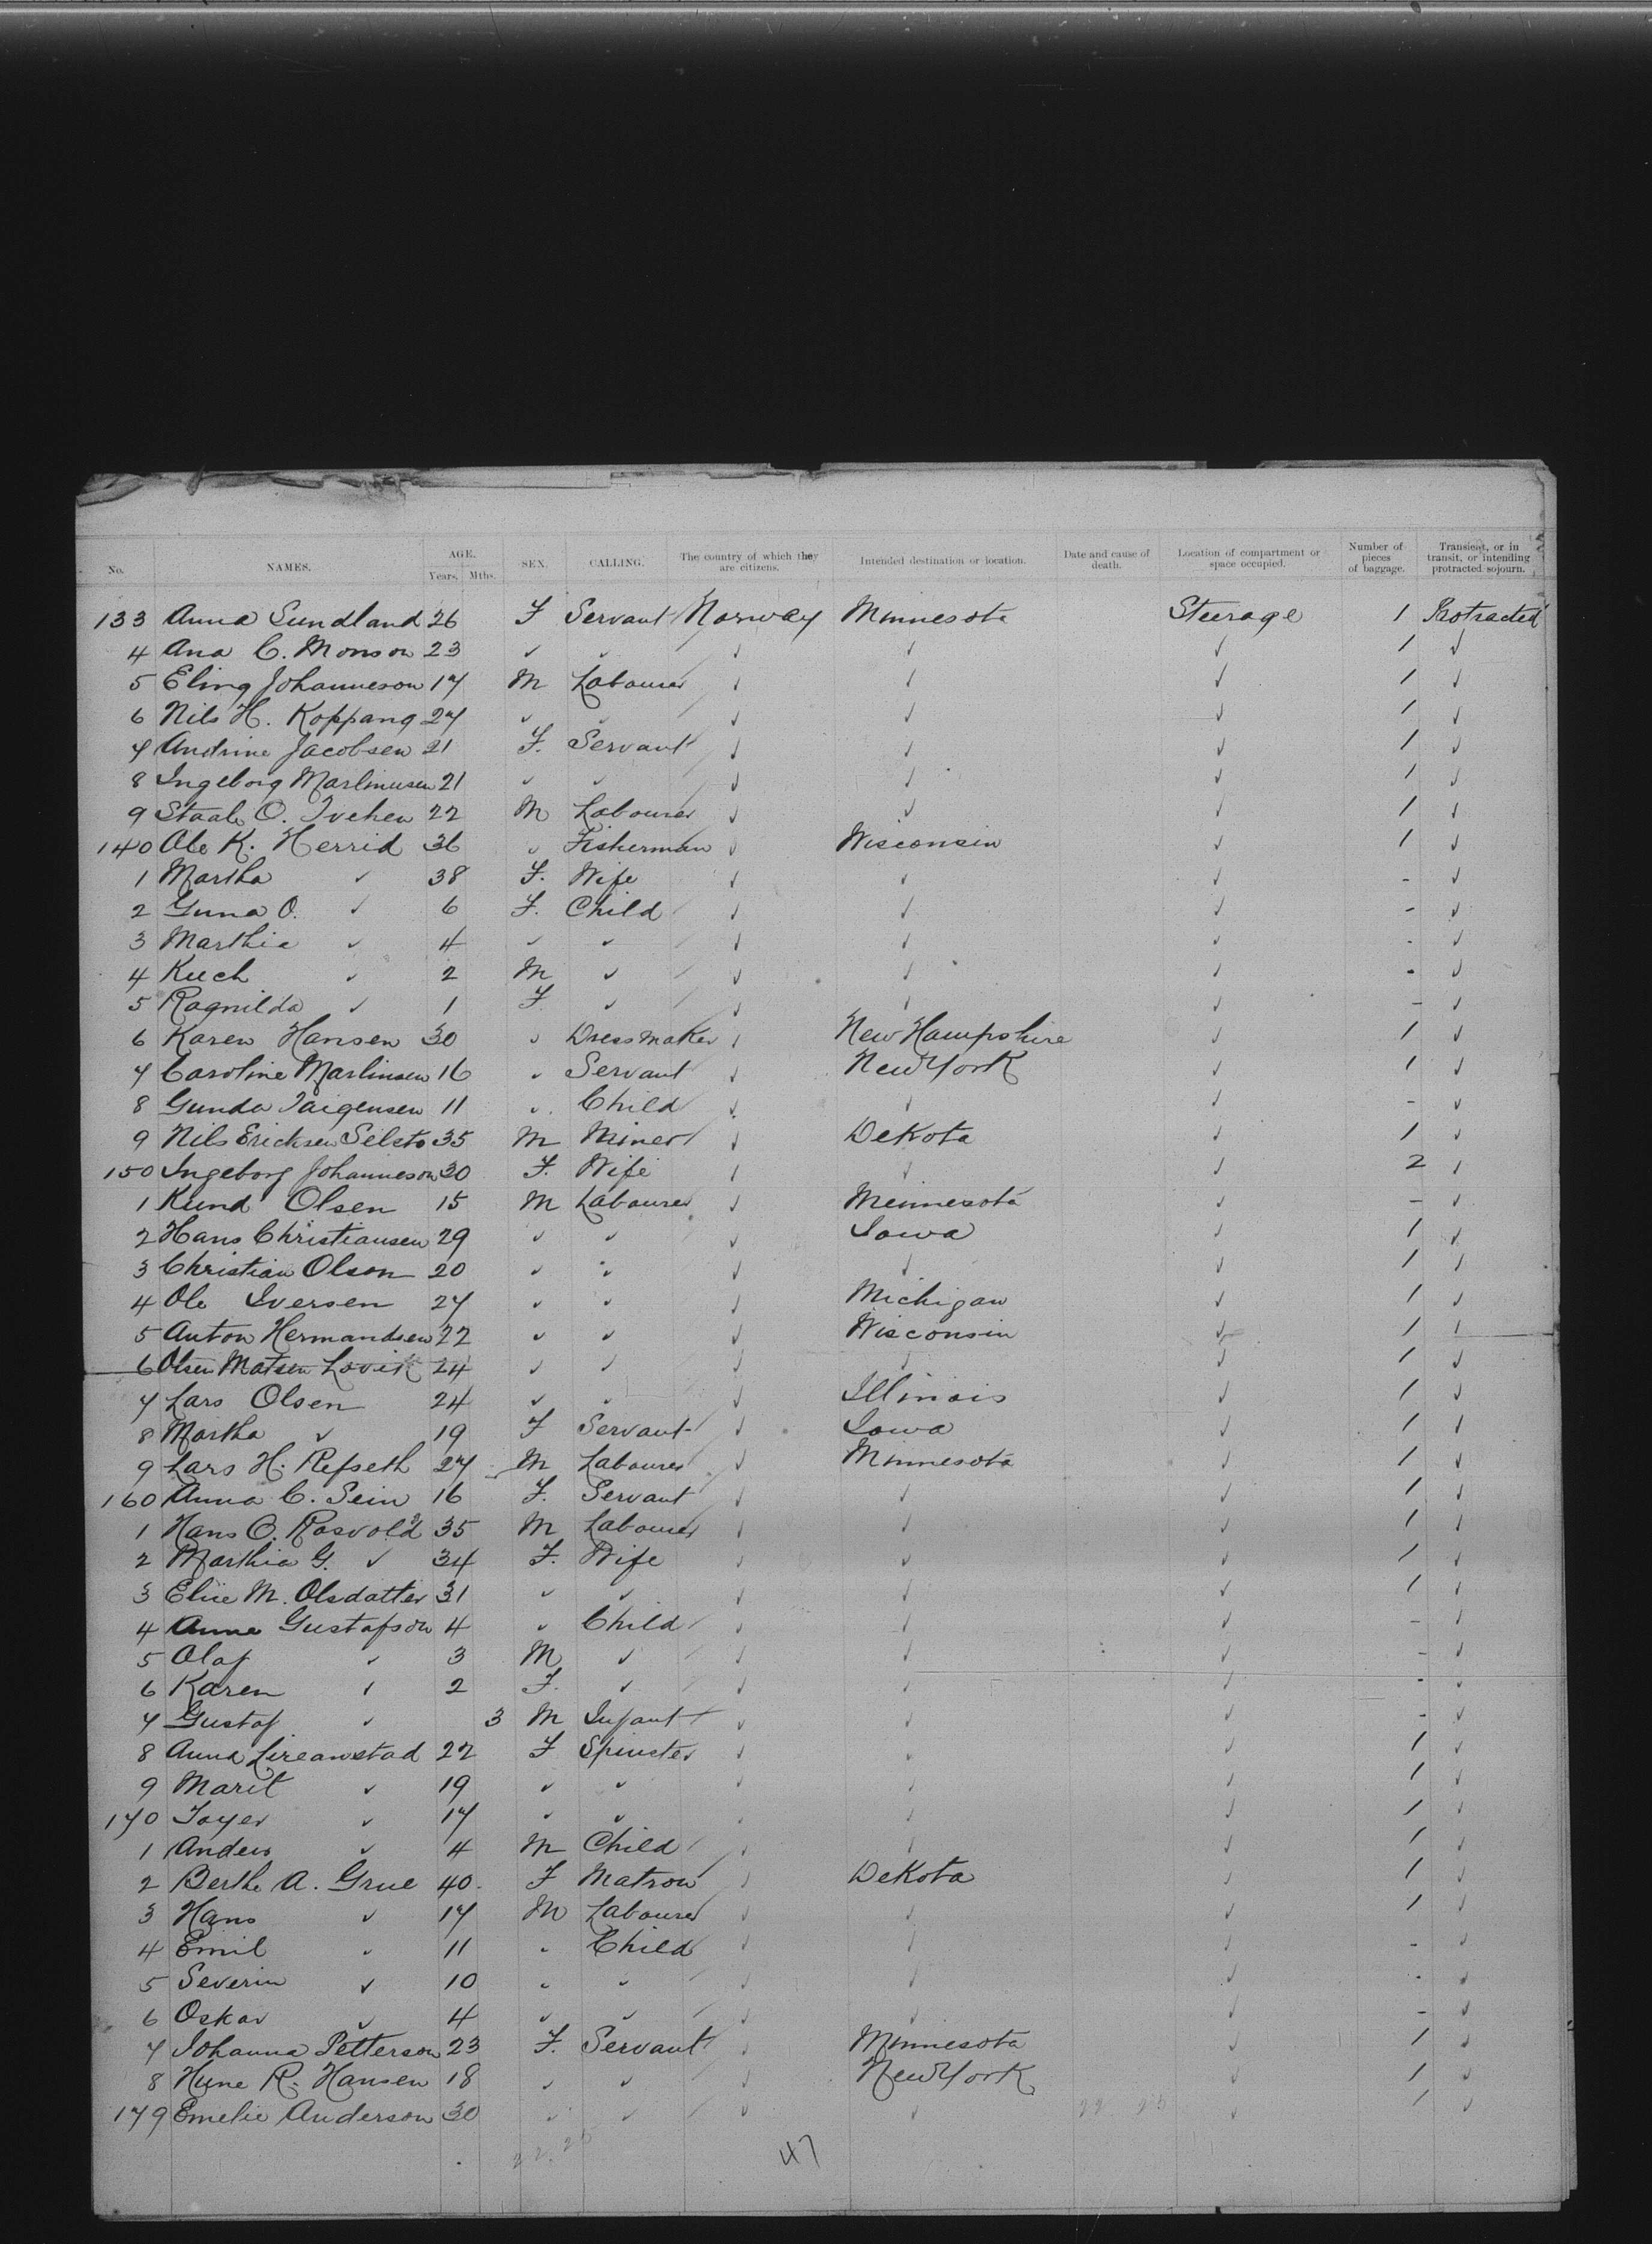 No. NAMES. AGE. Years. Mths. SEX. CALLING. The country of which they are citizens. Intended destination or location. Date and cause of death. Location of compartment or space occupied. Number of pieces of baggage. Transient, or in transit, or intending protracted sojourn.
133 Anna Sundland 26 F Servant Norway Minnesota Steerage 1 Protracted
4 Ana C. Monson 23 ✓ ✓ ✓ ✓ ✓ 1 ✓
5 Eling Johanneson 17 M Labourer ✓ ✓ ✓ 1 ✓
6 Nils H. Koppang 27 ✓ ✓ ✓ ✓ ✓ 1 ✓
7 Andrine Jacobsen 21 F. Servant ✓ ✓ ✓ 1 ✓
8 Ingeborg Marlinusen 21 ✓ ✓ ✓ ✓ ✓ 1 ✓
9 Staale O. 22 M Labourer ✓ ✓ ✓ 1 ✓
140 Ole K. Herrid 36 ✓ Fisherman ✓ Wisconsin ✓ 1 ✓
1 Martha ✓ 38 F. Wife ✓ ✓ ✓ - ✓
2 Guna O. ✓ 6 F. Child ✓ ✓ ✓ - ✓
3 Marthie ✓ 4 ✓ ✓ ✓ ✓ ✓ - ✓
4 ✓ 2 M ✓ ✓ ✓ ✓ - ✓
5 Ragnilda ✓ 1 F ✓ ✓ ✓ ✓ - ✓
6 Karen Hansen 30 ✓ Dressmaker ✓ New Hampshire ✓ 1 ✓
7 Caroline Marlinsen 16 ✓ Servant ✓ New York ✓ 1 ✓
8 Gunda 11 ✓ Child ✓ ✓ ✓ - ✓
9 Nils Ericksen Selsto 35 M Miner ✓ DeKota ✓ 1 ✓
150 Ingeborg Johanneson 30 F. Wife ✓ ✓ ✓ 2 ✓
1 Kund Olsen 15 M Labourer ✓ Minnesota ✓ - ✓
2 Hans Christiansen 29 ✓ ✓ ✓ Iowa ✓ 1 ✓
3 Christian Olson 20 ✓ ✓ ✓ ✓ ✓ 1 ✓
4 Ole Iversen 27 ✓ ✓ ✓ Michigan ✓ 1 ✓
5 Anton Hermandsen 22 ✓ ✓ ✓ Wisconsin ✓ 1 ✓
6 Olsen Matsen Lovik 24 ✓ ✓ ✓ ✓ ✓ 1 ✓
7 Lars Olsen 24 ✓ ✓ ✓ Illinois ✓ 1 ✓
8 Martha ✓ 19 F Servant ✓ Iowa ✓ 1 ✓
9 Lars H. Refseth 27 M Labourer ✓ Minnesota ✓ 1 ✓
160 Anna C. Sein 16 F. Servant ✓ ✓ ✓ 1 ✓
1 Hans O. Rosvold 35 M Labourer ✓ ✓ ✓ 1 ✓
2 Marthia G. ✓ 34 F. Wife ✓ ✓ ✓ 1 ✓
3 Elise M. Olsdatter 31 ✓ ✓ ✓ ✓ ✓ 1 ✓
4 Anna Gustafson 4 ✓ Child ✓ ✓ ✓ - ✓
5 Olaf ✓ 3 M ✓ ✓ ✓ ✓ - ✓
6 Karen ✓ 2 F. ✓ ✓ ✓ ✓ - ✓
7 Gustaf ✓ 3 M Infant ✓ ✓ ✓ - ✓
8 Anna Lireanstad 22 F Spinster ✓ ✓ ✓ 1 ✓
9 Marit ✓ 19 ✓ ✓ ✓ ✓ ✓ 1 ✓
170 Toyer ✓ 17 ✓ ✓ ✓ ✓ ✓ 1 ✓
1 Anders ✓ 4 M Child ✓ ✓ ✓ 1 ✓
2 Berthe A. Grue 40 F Matron ✓ DeKota ✓ 1 ✓
3 Hans ✓ 17 M Labourer ✓ ✓ ✓ 1 ✓
4 Emil ✓ 11 ✓ Child ✓ ✓ ✓ - ✓
5 Severin ✓ 10 ✓ ✓ ✓ ✓ ✓ - ✓
6 Oskar ✓ 4 ✓ ✓ ✓ ✓ ✓ - ✓
7 Johanna Petterson 23 F. Servant ✓ Minnesota ✓ 1 ✓
8 Hune R. Hansen 18 ✓ ✓ ✓ New York ✓ 1 ✓
179 Emelie Anderson 30 ✓ ✓ ✓ ✓ 22 25 ✓ 1 ✓
22. 25 47